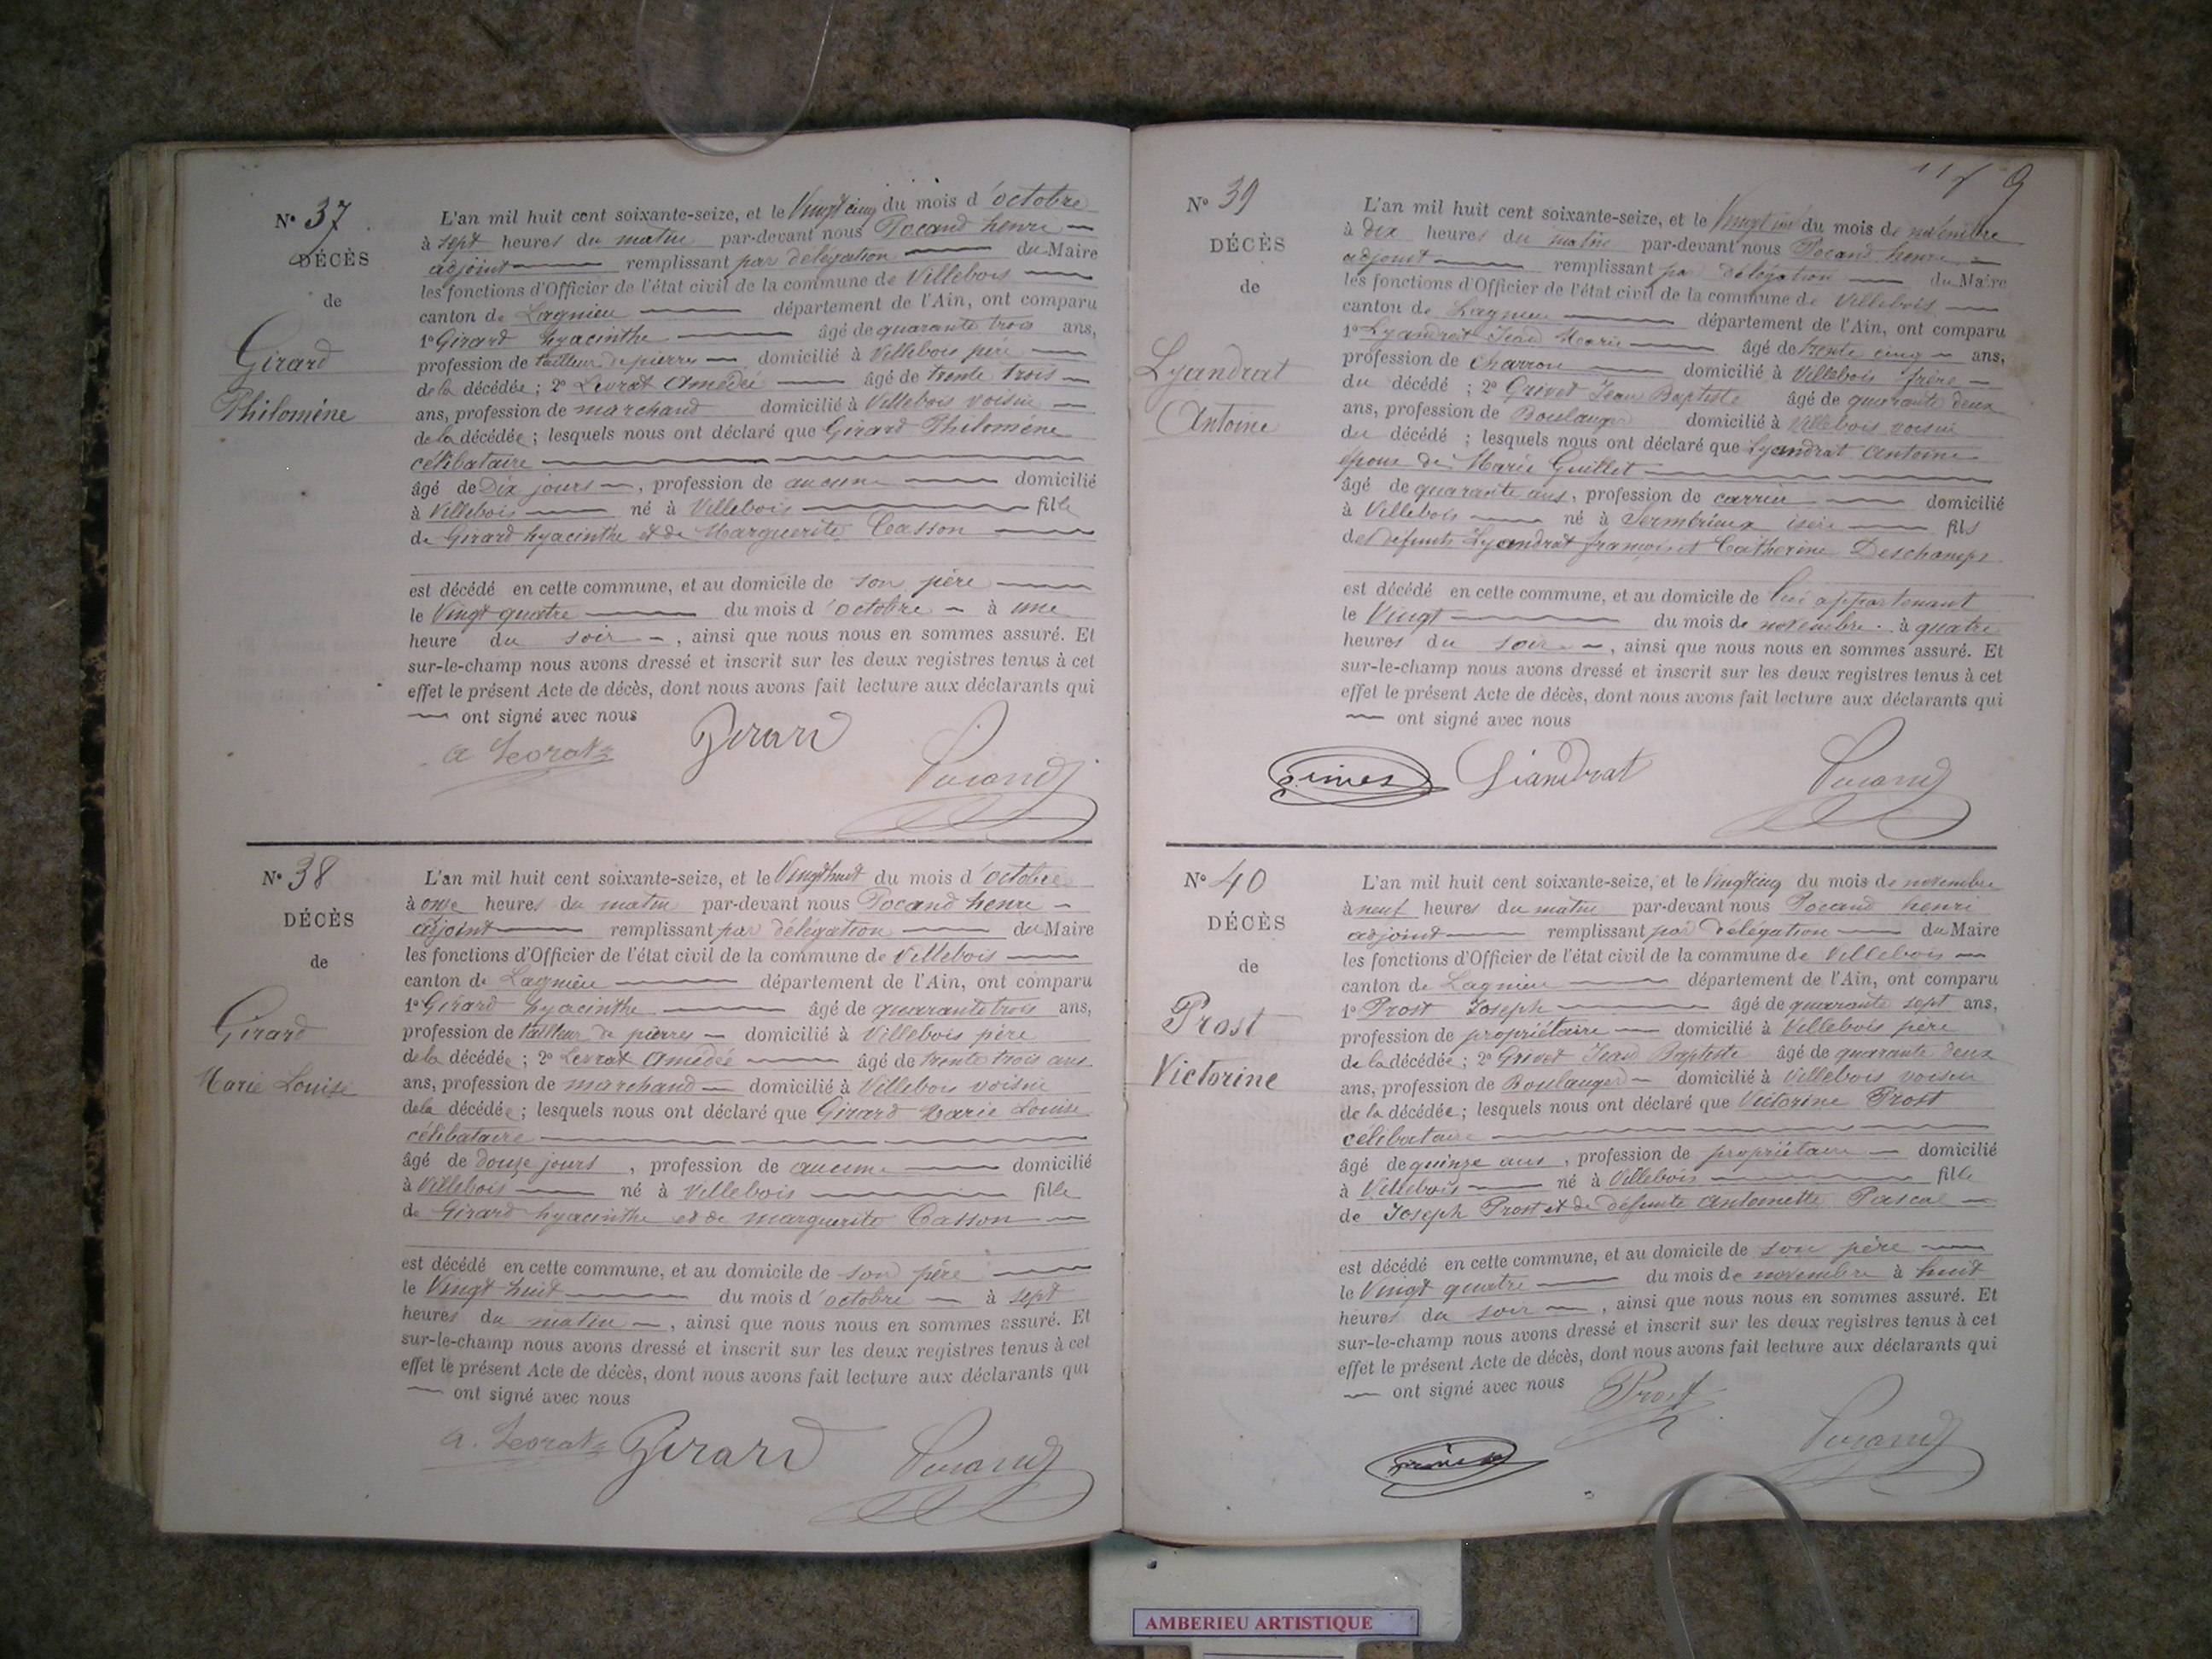 N° 37
DÉCÈS
de
Girard
Philomène
L'an mil huit cent soixante-seize, et le Vingt cinq du mois d'octobre
à sept heures du matin par-devant nous Pocand henri
adjoint remplissant par délégation du Maire
les fonctions d'Officier de l'état civil de la commune de Villebois
canton de Lagnieu département de l'Ain, ont comparu
1° Girard hyacinthe âgé de quarante trois ans,
profession de tailleur de pierres domicilié à Villebois père
de la décédée ; 2° Levrat Amédée âgé de trente trois
ans, profession de marchand domicilié à Villebois voisin
de la décédée ; lesquels nous ont déclaré que Girard Philomène
célibataire
âgé de Dix jours, profession de aucune domicilié
à Villebois né à Villebois fille
de Girard hyacinthe et de Marguerite Casson
est décédé en cette commune, et au domicile de son père
le Vingt quatre du mois d'octobre à une
heure du soir, ainsi que nous nous en sommes assuré. Et
sur-le-champ nous avons dressé et inscrit sur les deux registres tenus à cet
effet le présent Acte de décès, dont nous avons fait lecture aux déclarants qui
ont signé avec nous
a Levrat Girard Pocand
N° 38
DÉCÈS
de
Girard
Marie Louise
L'an mil huit cent soixante-seize, et le Vingt huit du mois d'octobre
à onze heures du matin par-devant nous Pocand henri
adjoint remplissant par délégation du Maire
les fonctions d'Officier de l'état civil de la commune de Villebois
canton de Lagnieu département de l'Ain, ont comparu
1° Girard hyacinthe âgé de quarante trois ans,
profession de tailleur de pierres domicilié à Villebois père
de la décédée ; 2° Levrat Amédée âgé de trente trois ans
ans, profession de marchand domicilié à Villebois voisin
de la décédée ; lesquels nous ont déclaré que Girard Marie Louise
célibataire
âgé de douze jours, profession de aucune domicilié
à Villebois né à Villebois fille
de Girard hyacinthe et de marguerite Casson
est décédé en cette commune, et au domicile de son père
le Vingt huit du mois d'octobre à sept
heures du matin, ainsi que nous nous en sommes assuré. Et
sur-le-champ nous avons dressé et inscrit sur les deux registres tenus à cet
effet le présent Acte de décès, dont nous avons fait lecture aux déclarants qui
ont signé avec nous
a. Levrat Girard Pocand
N° 39
DÉCÈS
de
Lyandrat
Antoine
L'an mil huit cent soixante-seize, et le Vingt un du mois de novembre
à dix heures du matin par-devant nous Pocand henri
adjoint remplissant par délégation du Maire
les fonctions d'Officier de l'état civil de la commune de Villebois
canton de Lagnieu département de l'Ain, ont comparu
1° Lyandrat Jean Marie âgé de trente cinq ans,
profession de charron domicilié à Villebois frère
du décédé ; 2° Grivet Jean Baptiste âgé de quarante deux
ans, profession de Boulanger domicilié à Villebois voisin
du décédé ; lesquels nous ont déclaré que Lyandrat antoine
époux de Marie Guillet
âgé de quarante ans, profession de carrier domicilié
à Villebois né à Sermérieux isère fils
de défunts Lyandrat françois et Catherine Deschamps
est décédé en cette commune, et au domicile de lui appartenant
le Vingt du mois de novembre à quatre
heures du soir, ainsi que nous nous en sommes assuré. Et
sur-le-champ nous avons dressé et inscrit sur les deux registres tenus à cet
effet le présent Acte de décès, dont nous avons fait lecture aux déclarants qui
ont signé avec nous
Liandrat Pocand
N° 40
DÉCÈS
de
Prost
Victorine
L'an mil huit cent soixante-seize, et le Vingt cinq du mois de novembre
à neuf heures du matin par-devant nous Pocand henri
adjoint remplissant par délégation du Maire
les fonctions d'Officier de l'état civil de la commune de Villebois
canton de Lagnieu département de l'Ain, ont comparu
1° Prost Joseph âgé de quarante sept ans,
profession de propriétaire domicilié à Villebois père
de la décédée ; 2° Grivet Jean Baptiste âgé de quarante deux
ans, profession de Boulanger domicilié à Villebois voisin
de la décédée ; lesquels nous ont déclaré que Victorine Prost
célibataire
âgé de quinze ans, profession de propriétaire domicilié
à Villebois né à Villebois fille
de Joseph Prost et de défunte Antoinette Pascal
est décédé en cette commune, et au domicile de son père
le Vingt quatre du mois de novembre à huit
heures du soir, ainsi que nous nous en sommes assuré. Et
sur-le-champ nous avons dressé et inscrit sur les deux registres tenus à cet
effet le présent Acte de décès, dont nous avons fait lecture aux déclarants qui
ont signé avec nous
Prost
Pocand
AMBERIEU ARTISTIQUE